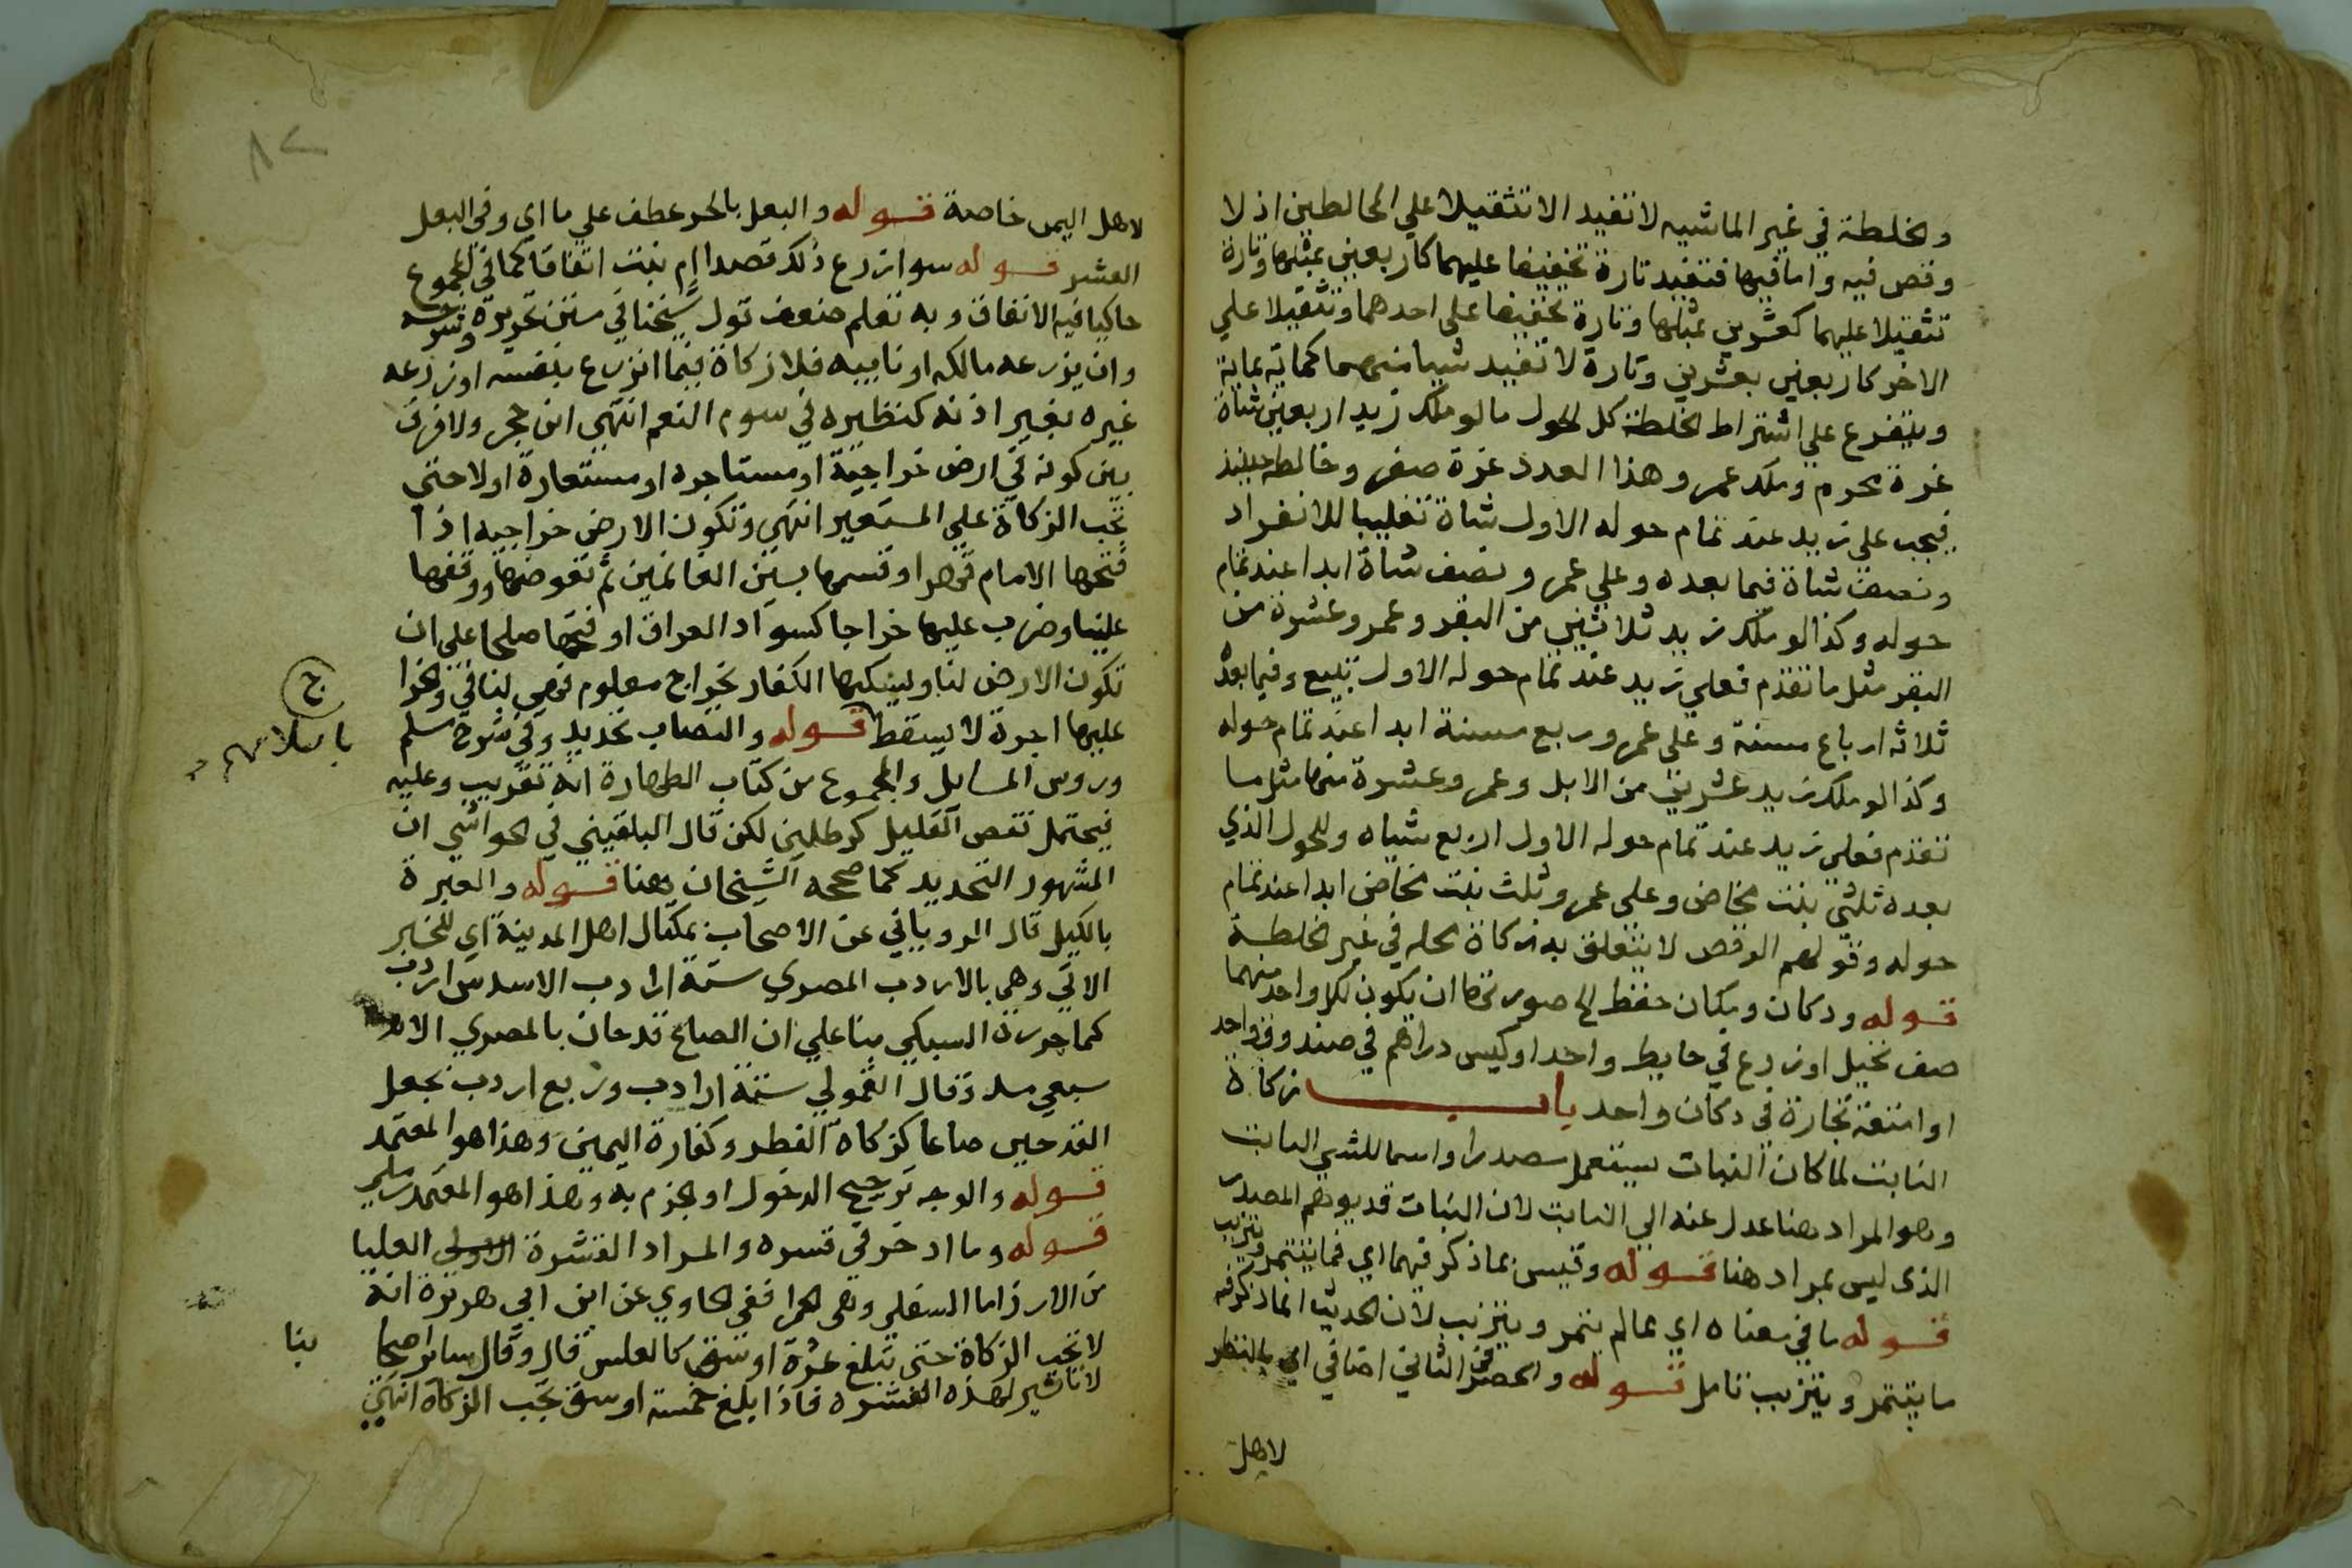 والخلطة في غير الماشيه لا تفيد الا تثقيلا علي الخالطين اذ لا
وقص فيه واما فيها فتفيد تارة تخفيفا عليهما كاربعين بمثلها وتارة
تثقيلا عليهما كعشرين بمثلها وتارة تخفيفا على احدهما وتثقيلا علي
الاخر كاربعين بعشرين وتارة لا تفيد شيا منهما كماية بماية
ويتفرع علي اشتراط الخلطة كل الحول ما لو ملك زيد اربعين شاة
غرة محرم وملك عمرو هذا العدد غرة صفر وخالطه حينيذ
فيجب علي زيد عند تمام حوله الاول شاة تغليبا للانفراد
ونصف شاة فيما بعده وعلي عمرو نصف شاة ابدا عند تمام
حوله وكذا لو ملك زيد ثلاثين من البقر وعمرو عشرة من
البقر مثل ما تقدم فعلي زيد عند تمام حوله الاول تبيع وفيما بعد
ثلاثه ارباع مسنة وعلى عمرو ربع مسنة ابدا عند تمام حوله
وكذا لو ملك زيد عشرين من الابل وعمرو عشرة منها مثل ما
تقدم فعلي زيد عند تمام حوله الاول اربع شياه وللحول الذي
بعده ثلثي بنت مخاض وعلى عمرو ثلث بنت مخاض ابدا عند تمام
حوله وقولهم الوقص لا يتعلق به زكاة محله في غير الخلطة
قوله ودكان ومكان حفظ الخ صورتها ان يكون لكل واحد منهما
صف نخيل او زرع في حايط واحد او كيس دراهم في صندوق واحد
او امتعة تجارة في دكان واحد باب زكاة
النابت لما كان النبات يستعمل مصدرا واسما للشي النابت
وهو المراد هنا عدل عنه الي النابت لان النبات قد يوهم المصدر
الذى ليس بمراد هنا قوله وقيس بما ذكر فيهما اي فما يتتمر ويتزبب
قوله ما في معناه اي مما لم يتمر ويتزبب لان الحديث انما ذكر فيه
ما يتتمر ويتزبب تامل قوله والحصر في الثاني اضافي اي بالنظر
لاهل
لاهل اليمن خاصة قوله والبعل بالجر عطف علي ما اي وفي البعل
العشر قوله سوا زرع ذلك قصدا ام نبت اتفاقا كما في المجموع
حاكيا فيه الاتفاق وبه تعلم ضعف قول شيخنا في متن تحريره وشرحه
وان يزرعه مالكه او نايبه فلا زكاة فيما انزرع بنفسه او زرعه
غيره بغير اذنه كنظيره في سوم النعم انتهي ابن حجر ولا فرق
بين كونه في ارض خراجية او مستاجره او مستعارة او لا حتي
تجب الزكاة علي المستعير انتهي وتكون الارض خراجيه اذا
فتحها الامام قهرا وقسمها بين الغانمين ثم تعوضها ووقفها
علينا وضرب عليها خراجا كسواد العراق او فتحها صلحا علي ان
تكون الارض لنا ويسكنها الكفار بخراج معلوم فهي لنا في والخرا ج
عليها اجرة لا يسقط باسلامهم قوله والنصاب تحديد وفي شرح مسلم
وروس المسايل والمجموع من كتاب الطهارة انه تقريب وعليه
فيحتمل نقص القليل كرطلين لكن قال البلقيني في الحواشي ان
المشهور التحديد كما صححه الشيخان وهنا قوله والعبرة
بالكيل قال الروياني عن الاصحاب بمكيال اهل المدينة اي للخبر
الاتي وهي بالاردب المصري ستة ارادب الا سدس اردب
كما حرره السبكي بنا علي ان الصاع قدحان بالمصري الا
سبعي مد وقال القمولي ستة ارادب وربع اردب بجعل
القدحين صاعا كزكاة الفطر وكفارة اليمين وهذا هو المعتمد
قوله والوجه ترجيح الدخول او الجزم به وهذا هو المعتمد
قوله وما ادخر في قشره والمراد القشرة العليا
من الارز اما السفلي وهي الحمرا ففي الحاوي عن ابن ابي هريرة انه
لا تجب الزكاة حتى تبلغ عشرة اوسق كالعلس قال وقال ساير اصحا بنا
لا تاثير لهذه القشره فاذا بلغ خمسة اوسق تجب الزكاة انتهي